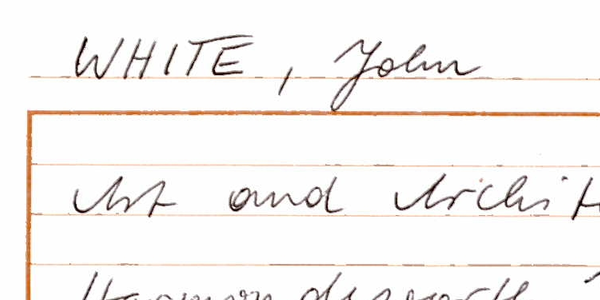 WHITE, John
Art and Archit